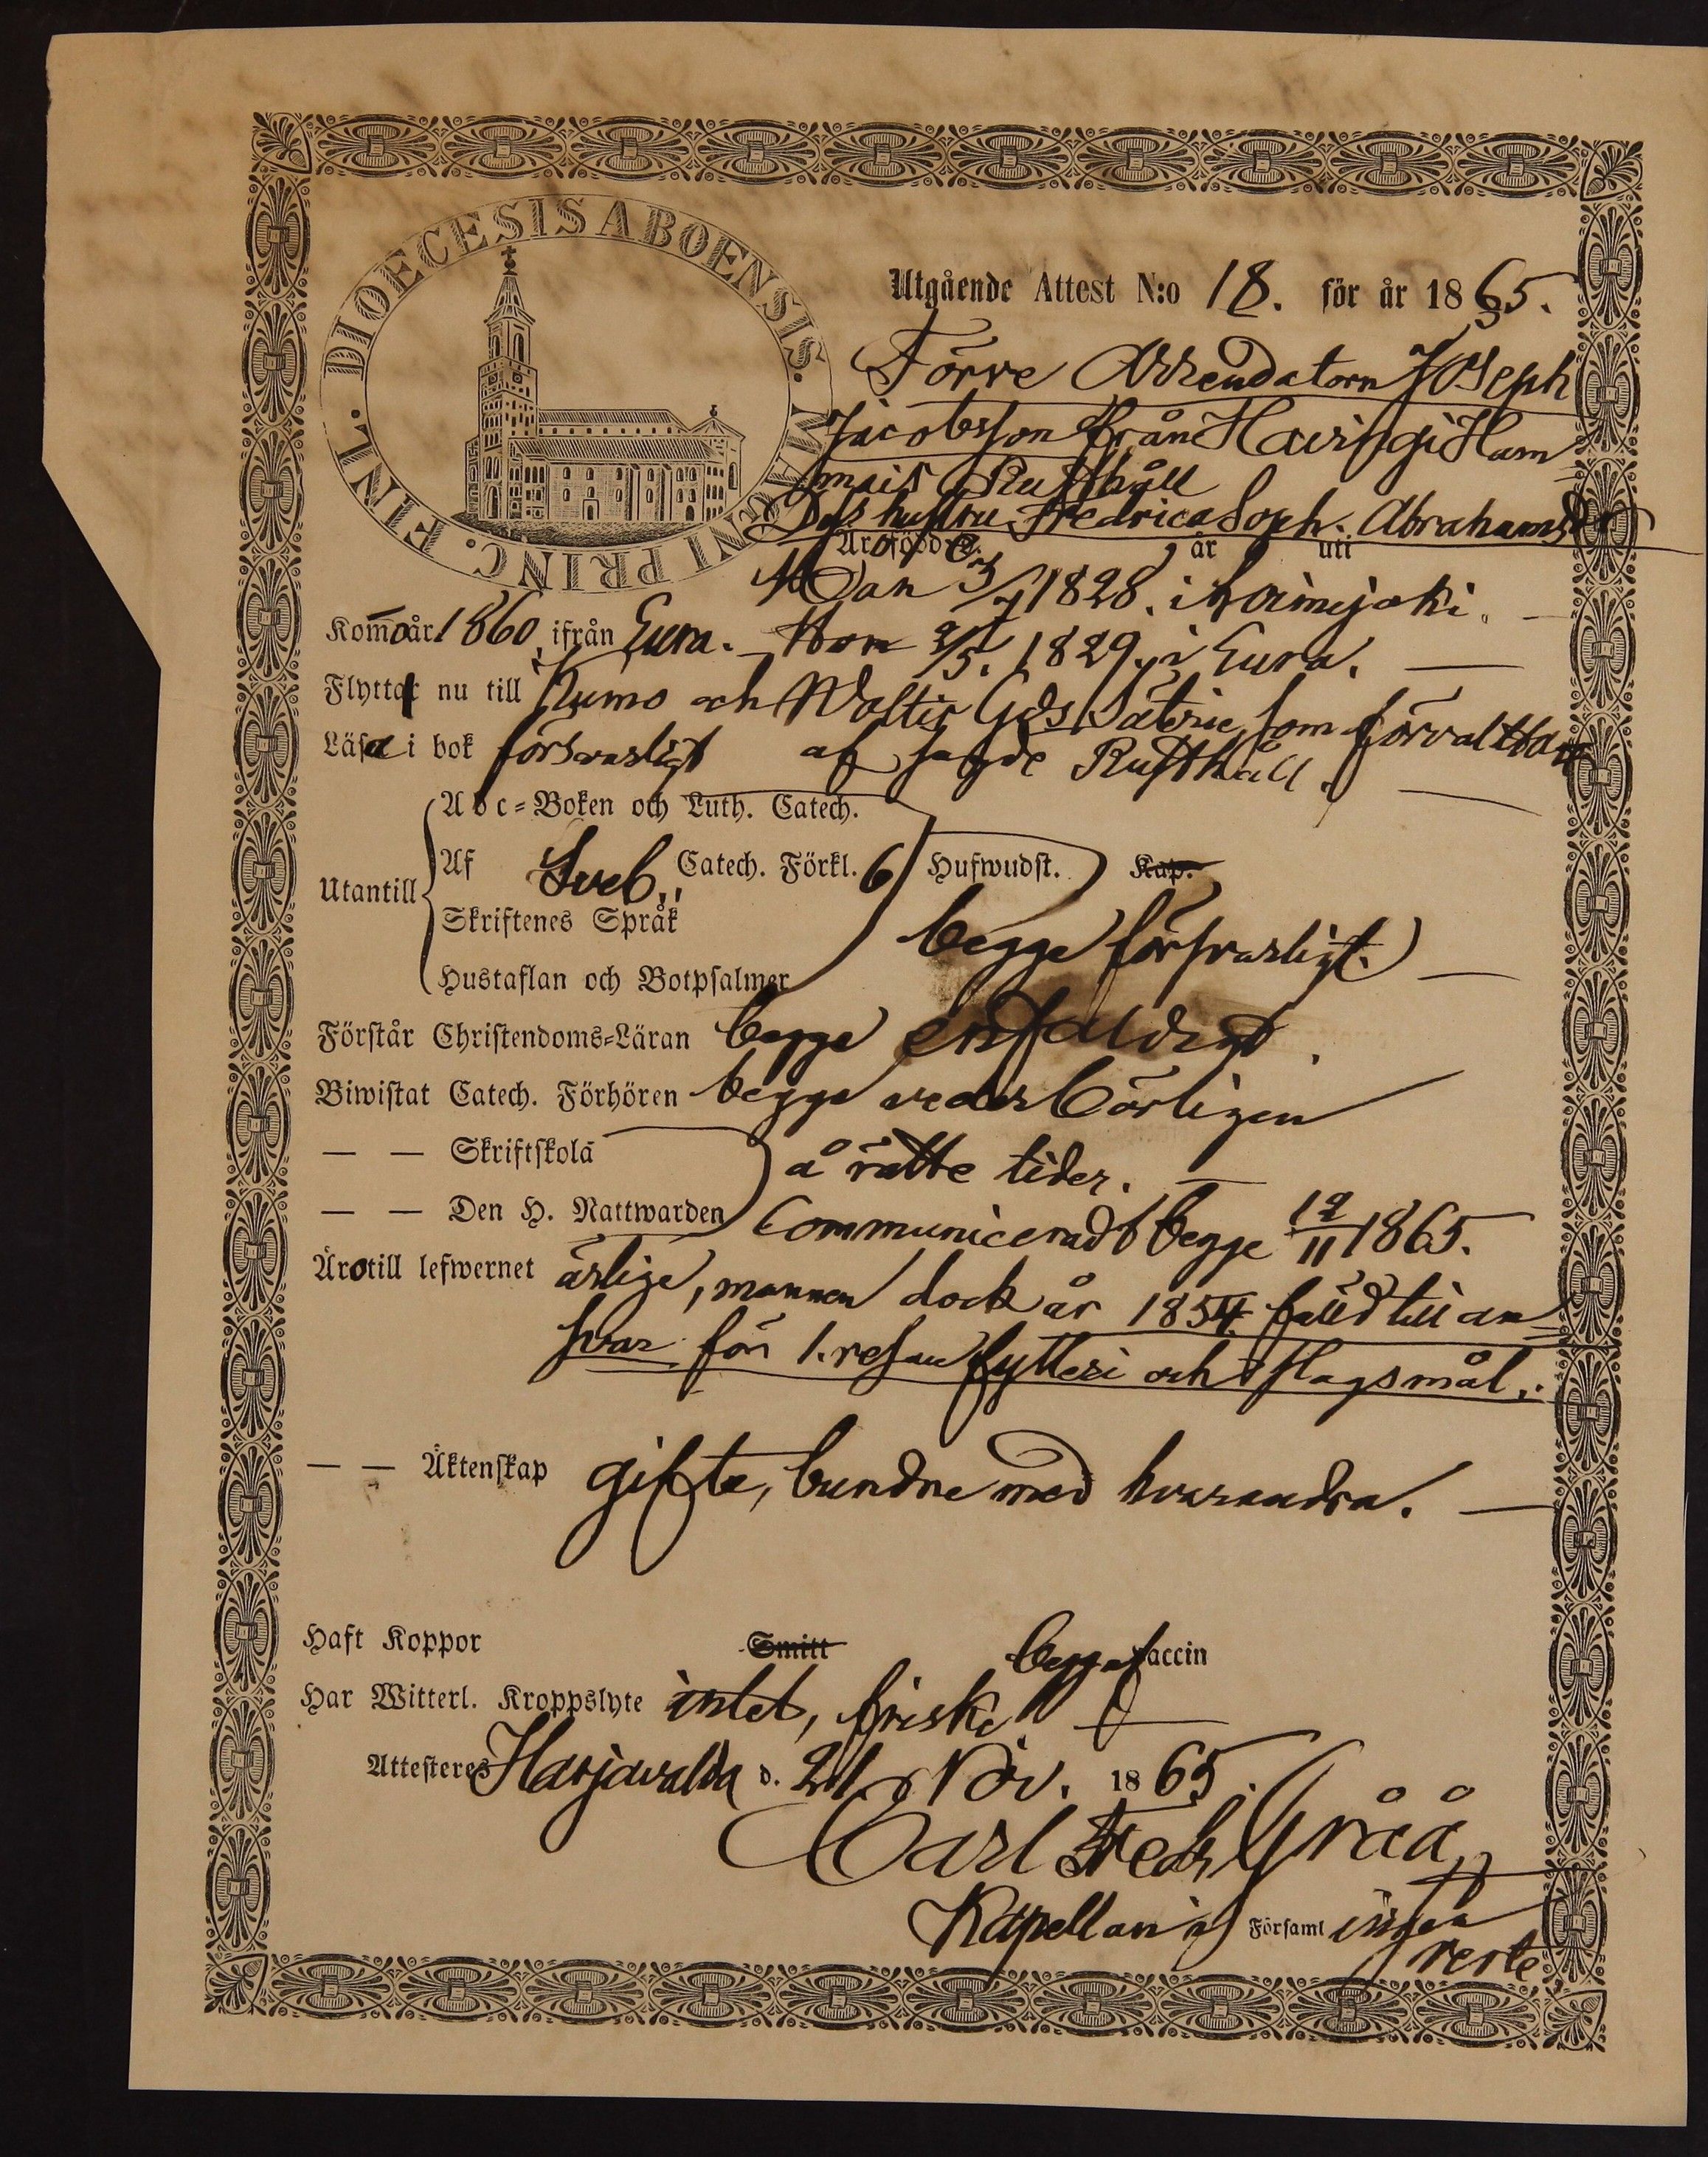 DIOECESIS ABOENSIS. MAGNI PRINC. FINL.
Utgående Attest N:o 18. för år 1865.
Förre Arrendatorn Joseph
Jacobsson från Havingi Ham
mais Rusthåll
Dess hustru Fredrica Soph. Abrahamsdr
Äro födde år uti
Man 3/7 1828. i Hoinijoki.
Kommo år 1860, ifrån Eura. Hon 2/5. 1829. i Eura.
Flytta nu till Kumo och Woltis Gds Säterie, som förvaltare
Läsa i bok försvarligt af sagde Rusthåll.
Abc-Boken och Luth. Catech.
Utantill Af Sveb. Catech. Förkl. 6 Hufwudst. Kap.
Skriftenes Språk begge försvarligt.
Hustaflan och Botpsalmer
Förstår Christendoms-Läran begge enfaldigt.
Biwistat Catech. Förhören begge vederbörligen
— — Skriftskola å rätte tider.
— — Den H. Nattwarden Communicerade begge 12/11 1865.
Äro till lefwernet ärlige, mannen dock år 1854 fälld till an
svar för 1. resan fylleri och slagsmål.
— — Äktenskap gifte, bundne med hvarandra.
Haft Koppor Smitt begge vaccin
Har Witterl. Kroppslyte intet, friske
Attesteres Harjavalda d. 21 Nov. 1865.
Carl Fredr Gråå
Kapellan i Församlingen
verte